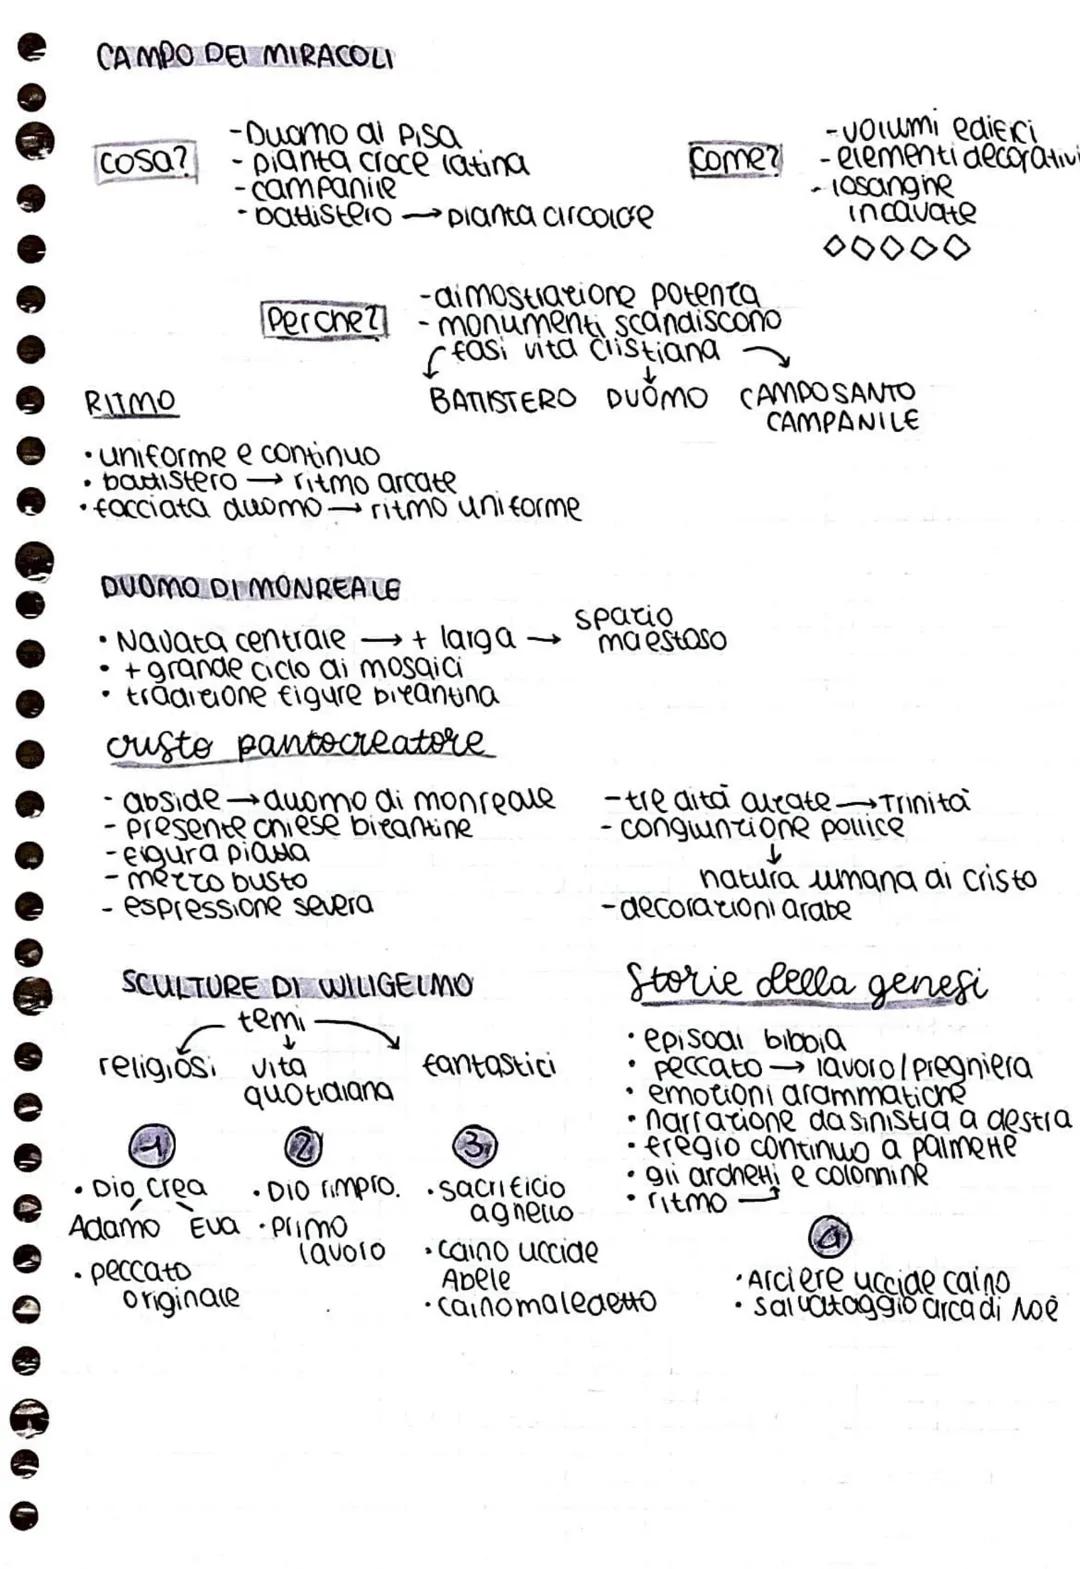 CAMPO DEI MIRACOLI
cosa?
- Duomo di PISA
- pianta croce latina
- campanile
- battistero → pianta circolare
come?
- volumi edifici
- elementi decorativi
- losanghe
incavate
◇◇◇◇◇
Perche?
- dimostrazione potenza
- monumenti scandiscono
fasi vita cristiana
BATTISTERO DUOMO CAMPOSANTO
CAMPANILE
RITMO
• uniforme e continuo
• battistero → ritmo arcate
• facciata duomo → ritmo uniforme
DUOMO DI MONREALE
• Navata centrale → + larga → spazio
maestoso
• + grande ciclo di mosaici
• tradizione figure bizantina
cristo pantocreatore
- abside → duomo di monreale
- presente chiese bizantine
- figura piatta
- mezzo busto
- espressione severa
- tre dita alzate → Trinità
- congiunzione pollice
↓
natura umana di Cristo
- decorazioni arabe
SCULTURE DI WILIGELMO
temi
religiosi vita fantastici
quotidiana
1
• Dio crea
Adamo Eva
• peccato
originale
2
• Dio rimpro.
• primo
lavoro
3
• sacrificio
agnello
• Caino uccide
Abele
• caino maledetto
Storie della genesi
• episodi bibbia
• peccato → lavoro/pregniera
• emozioni drammatiche
• narrazione da sinistra a destra
• fregio continuo a palmette
• gli archetti e colonnine
• ritmo
4
• Arciere uccide caino
• salvataggio arca di Noè